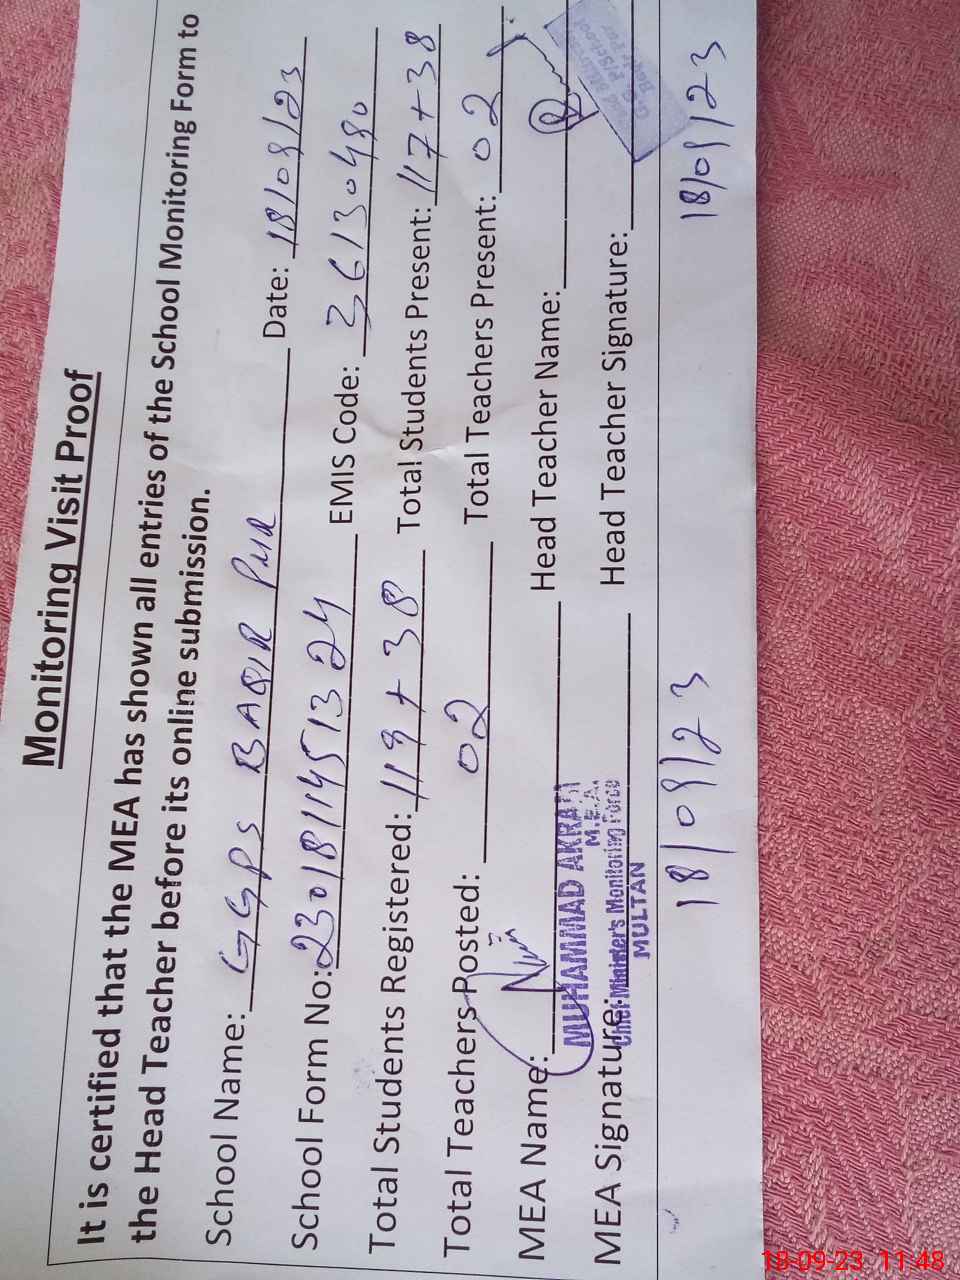 Monitoring Visit Proof
It is certified that the MEA has shown all entries of the School Monitoring Form to
the Head Teacher before its online submission.
School Name: GGPS BAQIR PUR Date: 18/09/23
School Form No: 2301811451324 EMIS Code: 36130480
Total Students Registered: 119+38 Total Students Present: 117+38
Total Teachers Posted: 02 Total Teachers Present: 02
MEA Name: Head Teacher Name:
MUHAMMAD AKRAM
M.E.A.
Chief Minister's Monitoring Force
MULTAN
MEA Signature: Head Teacher Signature:
18/09/23 18/09/23
18-09-23 11:48